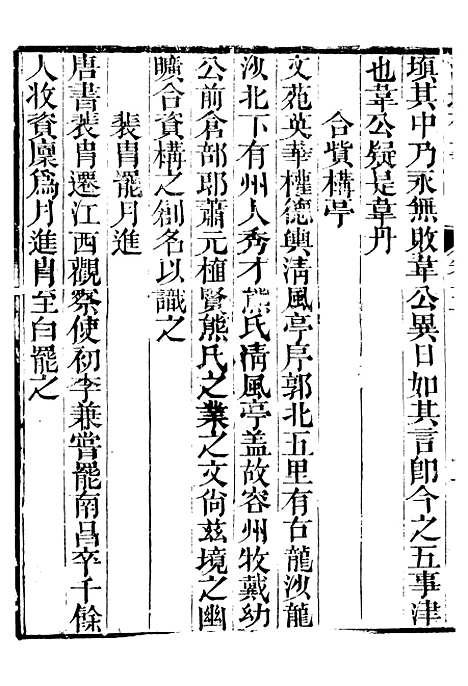 填其中乃永無敗韋公異日如其言卽今之五事津
也韋公疑是韋丹
合貲構亭
文苑英華權德輿淸風亭序郭北五里有古龍沙龍
沙北下有州人秀才熊氏淸風亭盖故容州牧戴幼
公前倉部郎蕭元植賢熊氏之業之文尙茲境之幽
曠合資構之創名以識之
裴胄罷月進
唐書裴胄遷江西觀察使初李兼嘗罷南昌卒千餘
人收資廩爲月進胄至白罷之